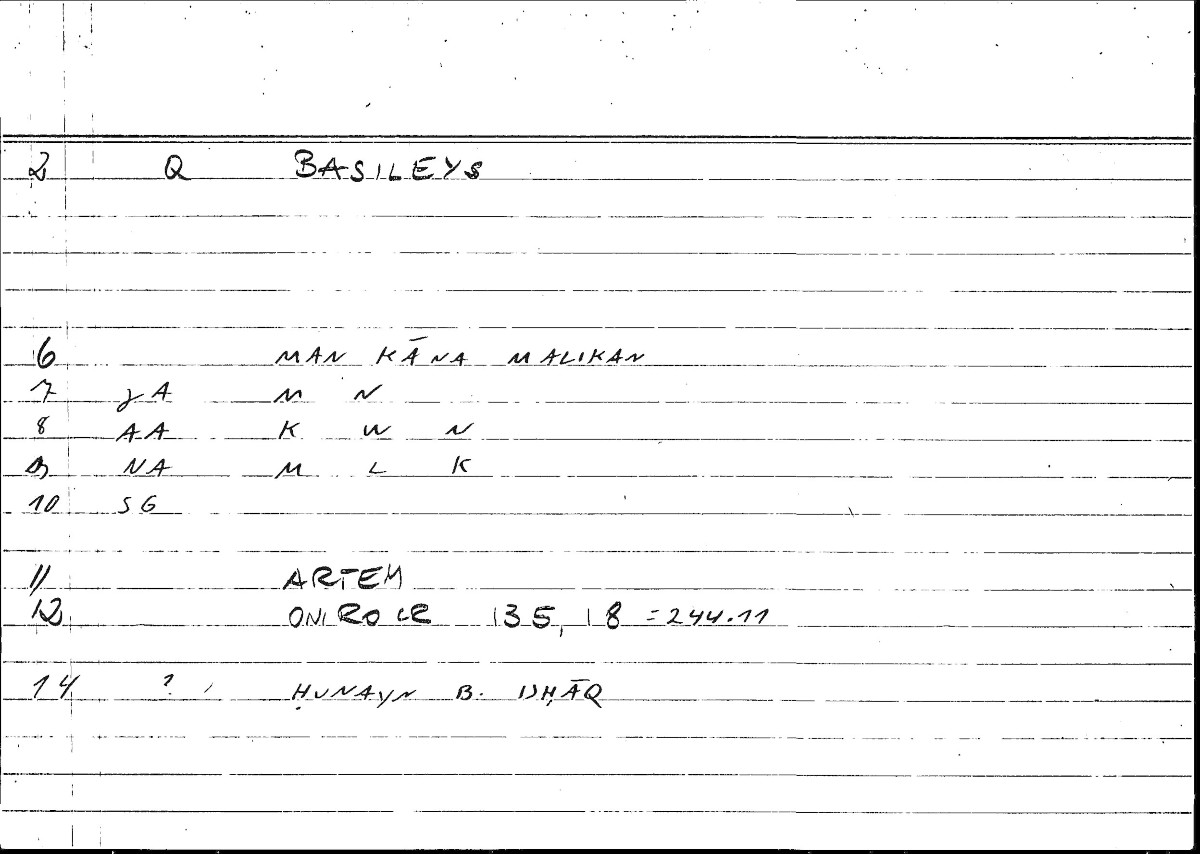 2 Q BASILEYS
6 MAN KĀNA MALIKAN
7 JA M N
8 AA K W N
9 NA M L K
10 SG
11 ARTEM
12 ONIROCR 135, 18 = 244.11
14 ? ḤUNAYN B. ISḤĀQ